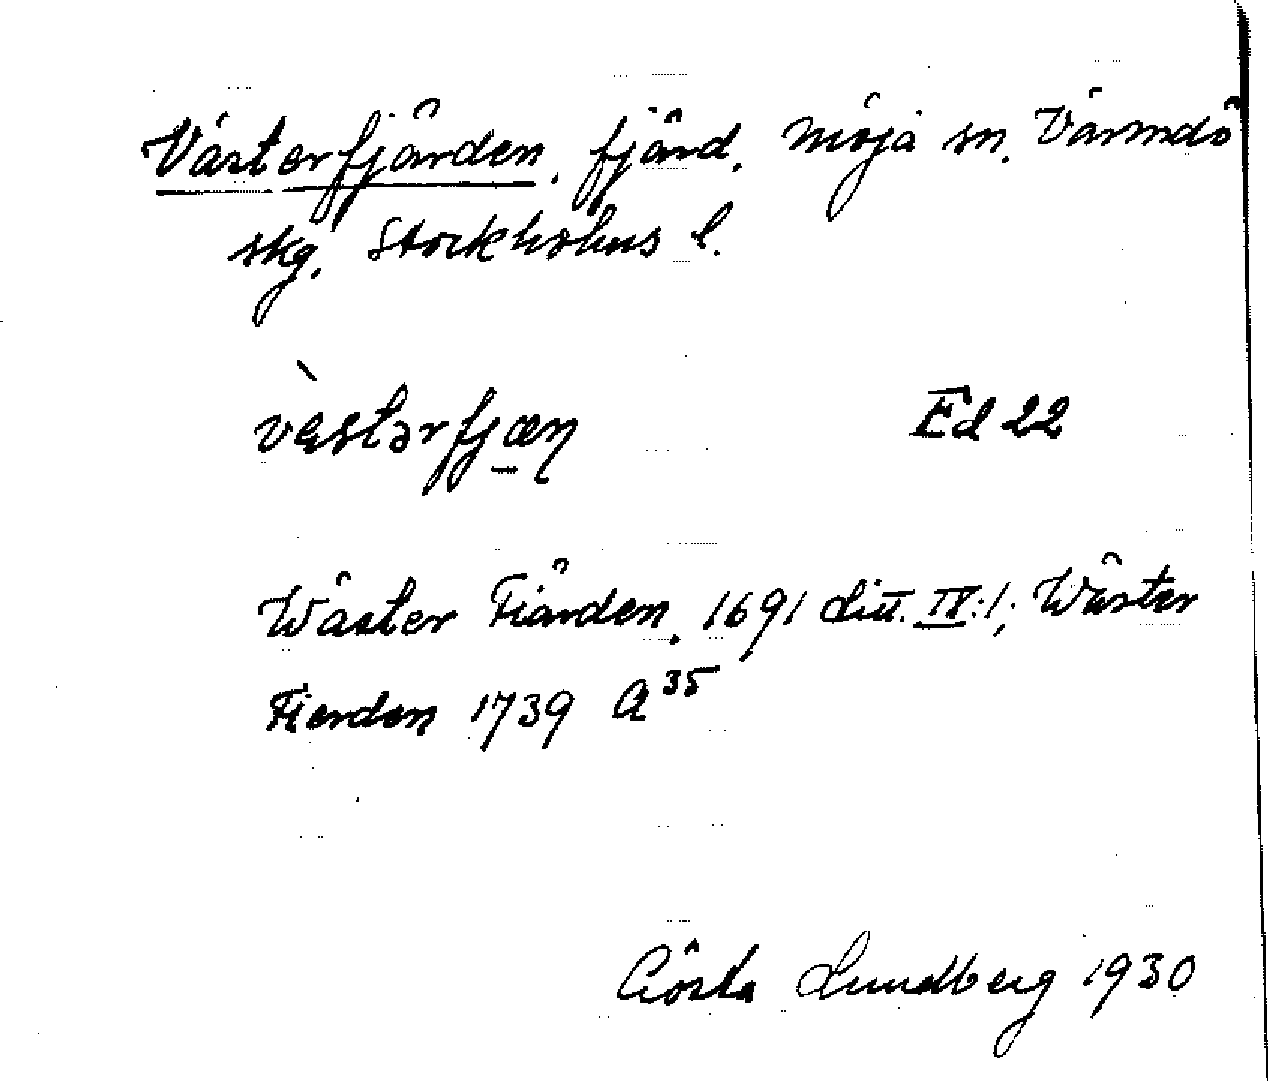 Västerfjärden. fjärd. Möja sn. Värmdö
skg. Stockholms l.
vèstərfjæɳ Ed 22
Wäster Fiärden. 1691 Litt. IV:1; Wäster
Fierden 1739 A 35
Gösta Lundberg 1930